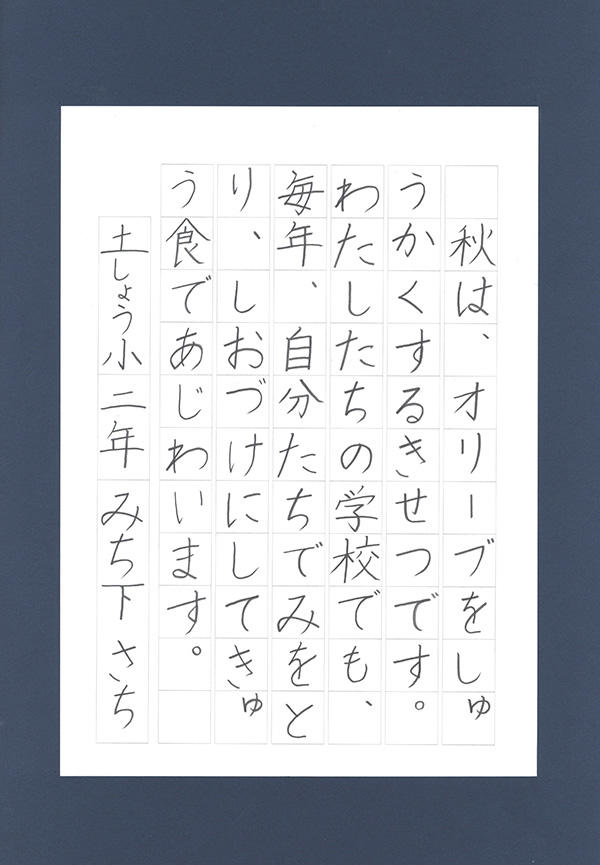 秋は、オリーブをしゅ
うかくするきせつです。
わたしたちの学校でも、
毎年、自分たちでみをと
り、しおづけにしてきゅ
う食であじわいます。
土しょう小 二年 みち下 さち